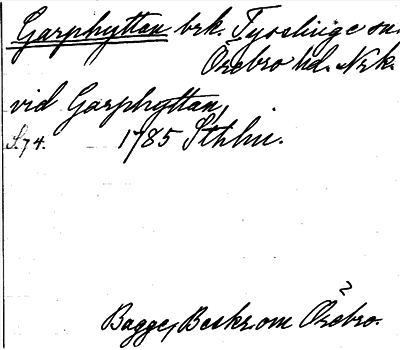 Garphyttan brk. Tysslinge sn.
Örebro hd. Nrk.
vid Garphyttan,
S. 74. 1785 Sthlm.
2
Bagge, Beskr. om Örebro.